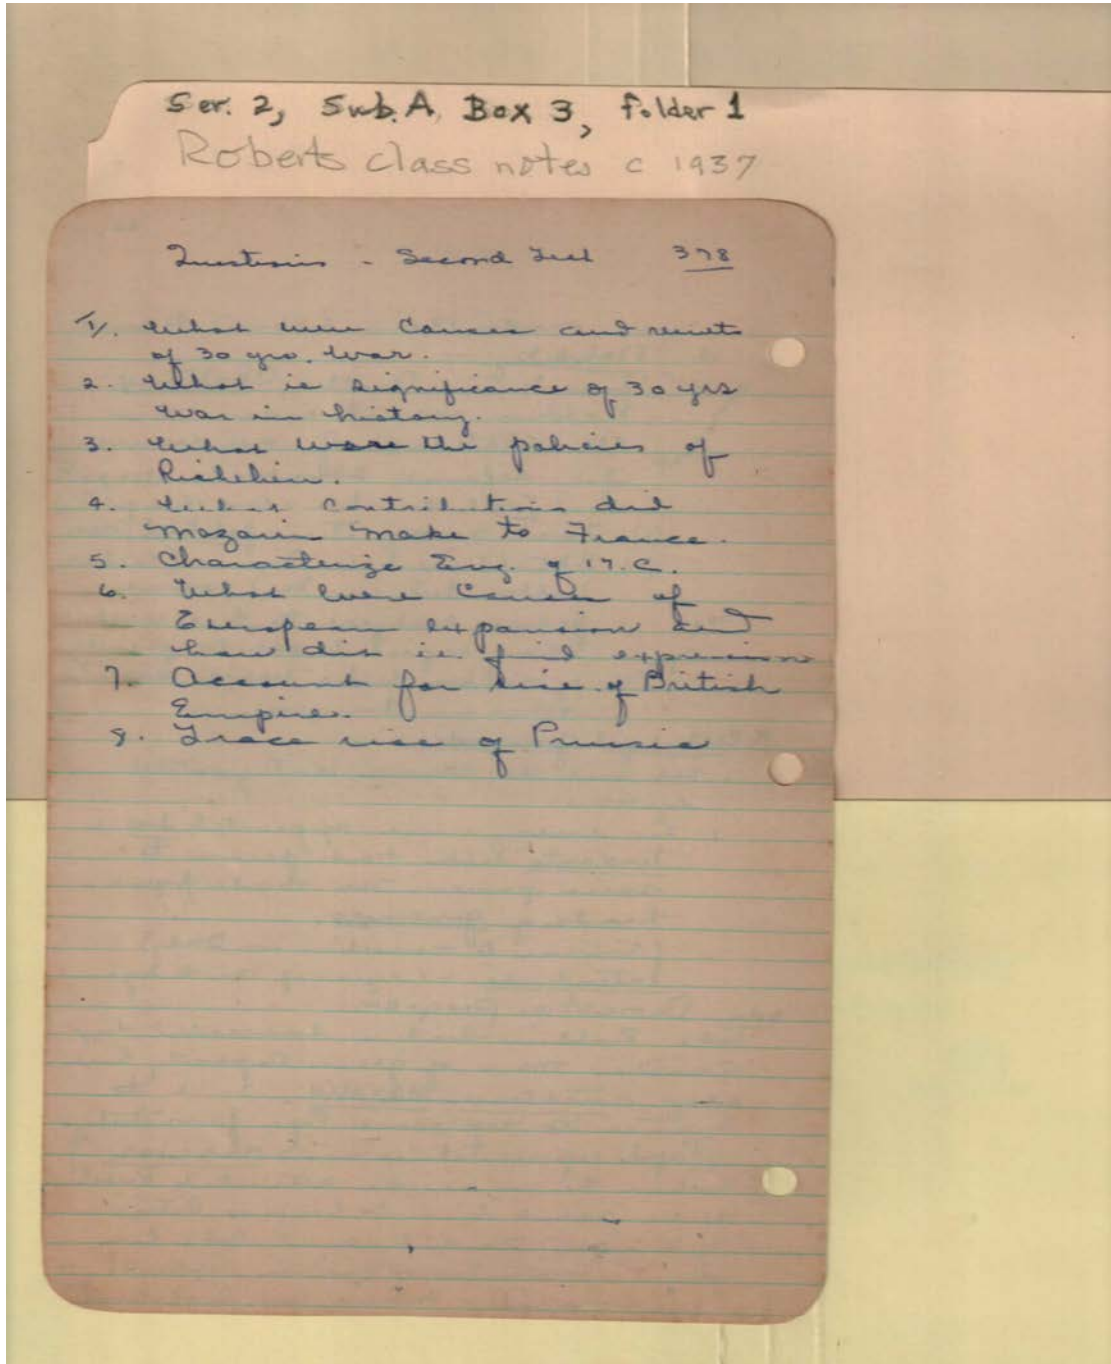 Ser. 2, Sub. A, Box 3, folder 1
Roberts class notes c 1937
Questions - Second Test 378
1/. What were Causes and results
of 30 yrs. War.
2. What is significance of 30 yrs
War in history.
3. What were the policies of
Richelieu.
4. What contributions did
Mazarin make to France.
5. Characterize Eng. of 17. C.
6. What were Causes of
European expansion and
how did it find expression
7. Account for rise of British
Empire.
8. Trace rise of Prussia